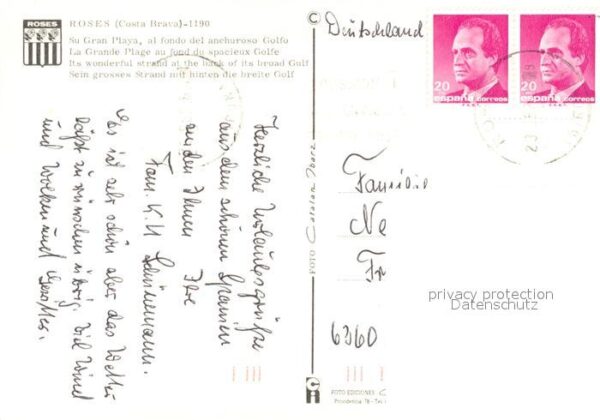 ROSES
ROSES (Costa Brava)-1190
Su Gran Playa, al fondo del anchuroso Golfo
La Grande Plage au fond du spacieux Golfe
Its wonderful strand at the bank of its broad Gulf
Sein grosses Strand mit hinten die breite Golf
Herzliche Urlaubsgrüße
aus dem schönen Spanien
Ihre
Fam. K.H
Es ist sehr schön aber das Wetter
läßt zu wünschen übrig. Viel Wind
und Wolken und
©
FOTO
FOTO EDICIONES
Deutschland
20
españa correos
20
españa correos
Familie
Ne
Fr
6360
privacy protection
Datenschutz